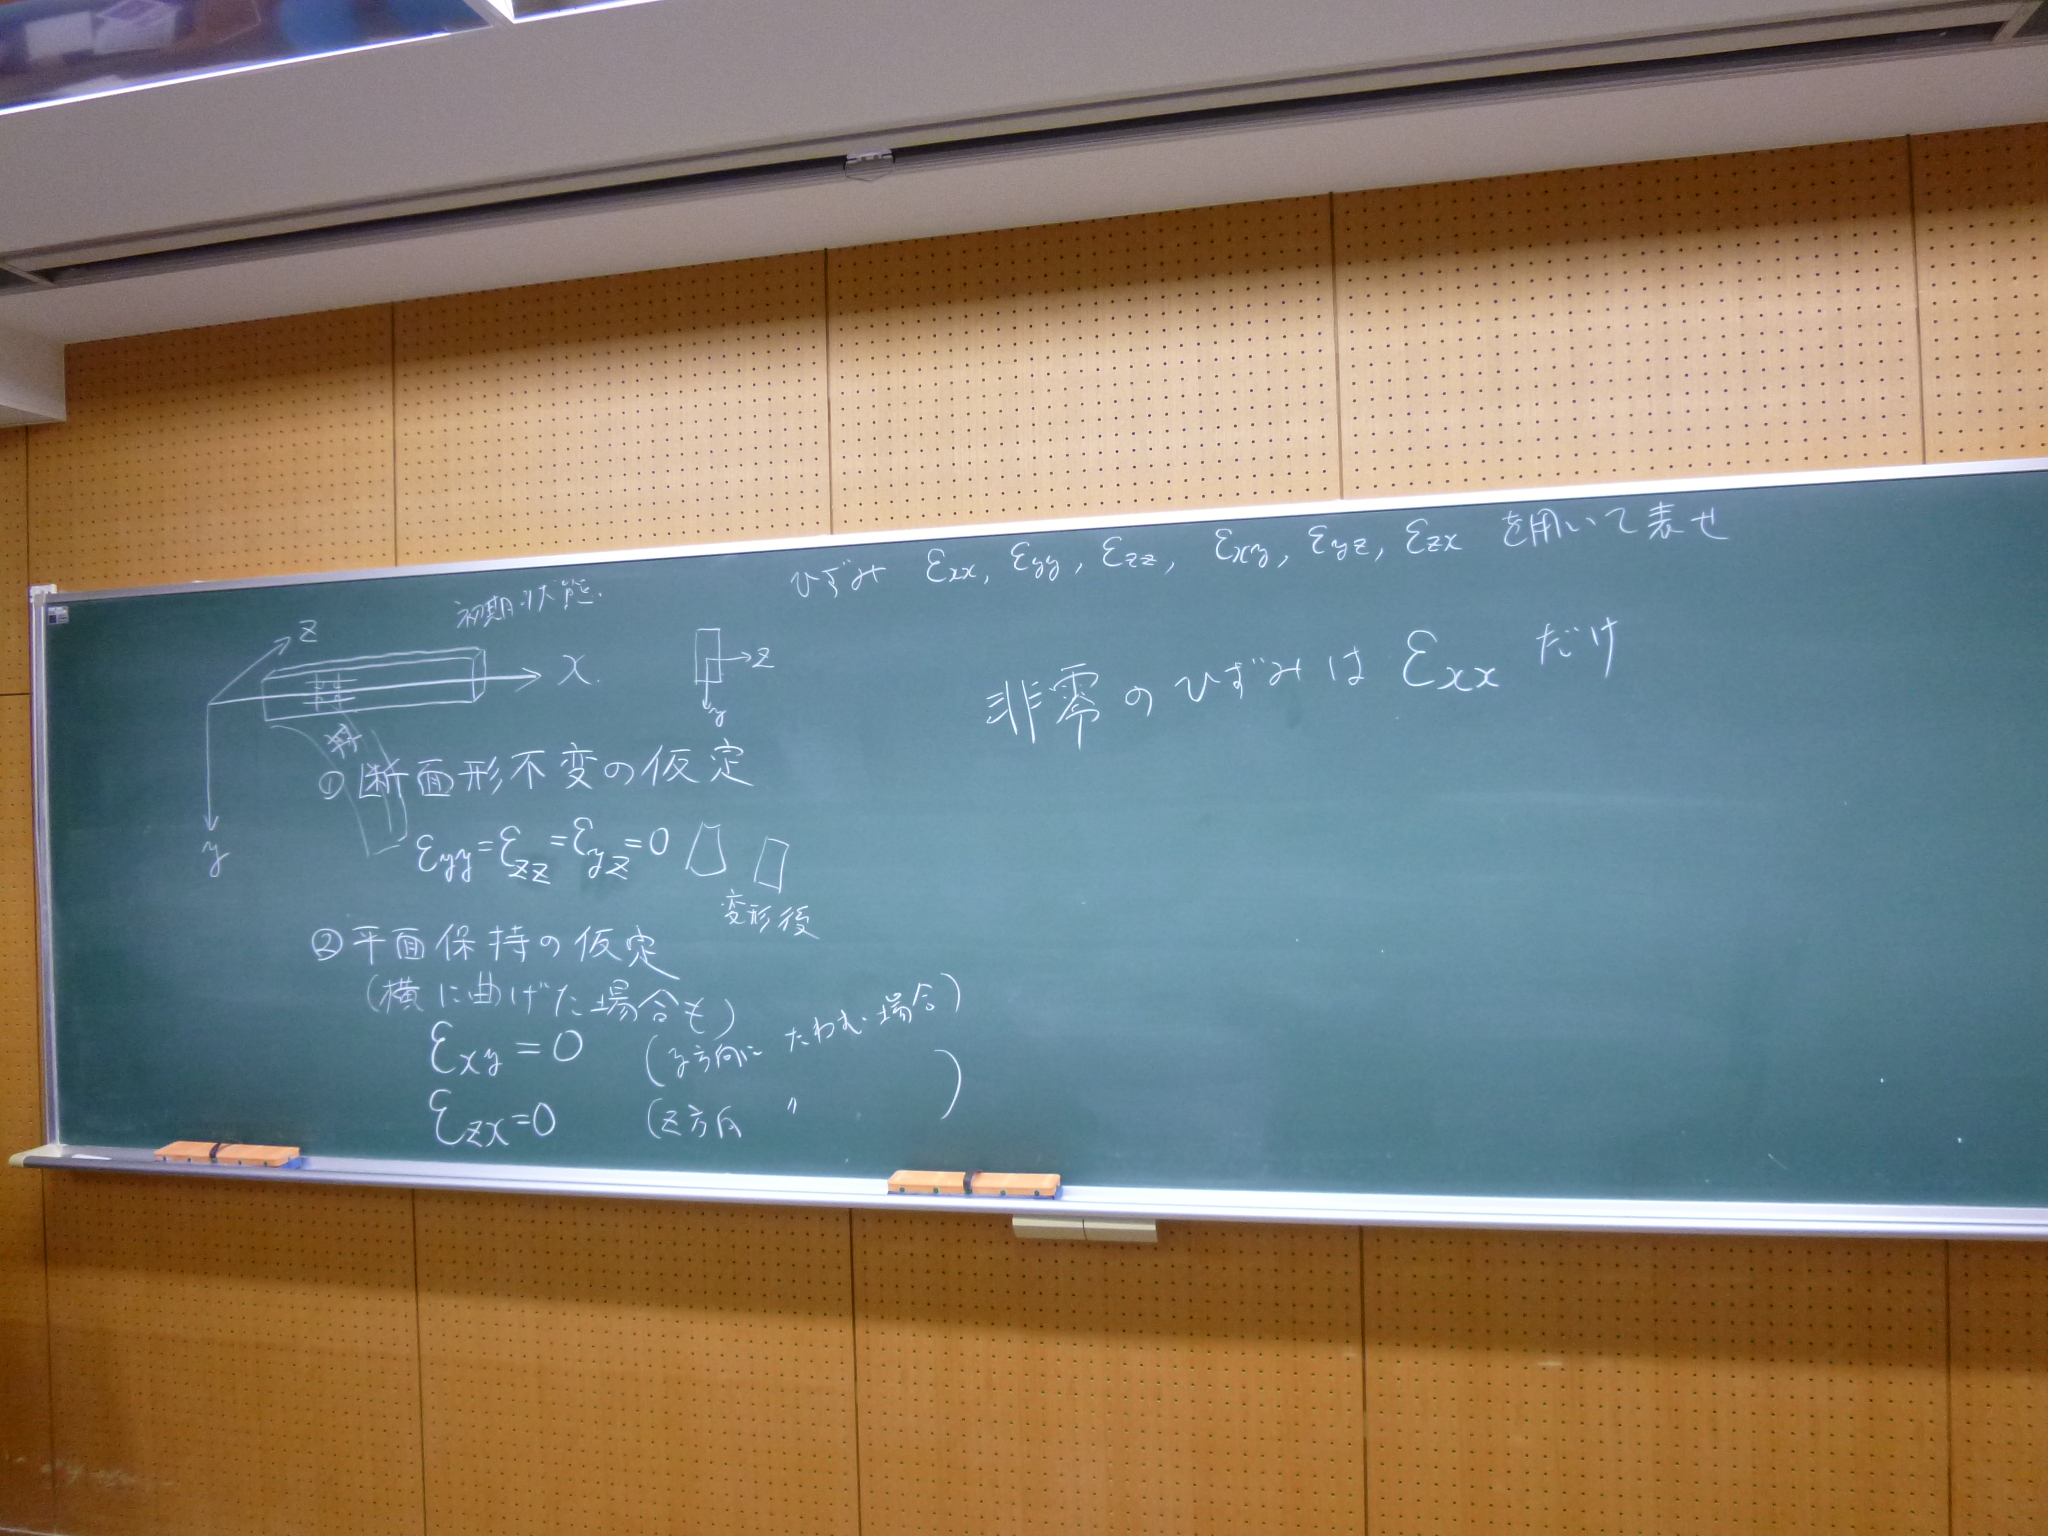 ひずみ εxx, εyy, εzz, εxy, εyz, εzx を用いて表せ
初期状態.
z
x.
y
z
y
非零のひずみは εxx だけ
① 断面形不変の仮定
εyy=εzz=εyz=0
変形後
② 平面保持の仮定
(横に曲げた場合も)
εxy=0 (y方向に たわむ場合)
εzx=0 (z方向 〃 )